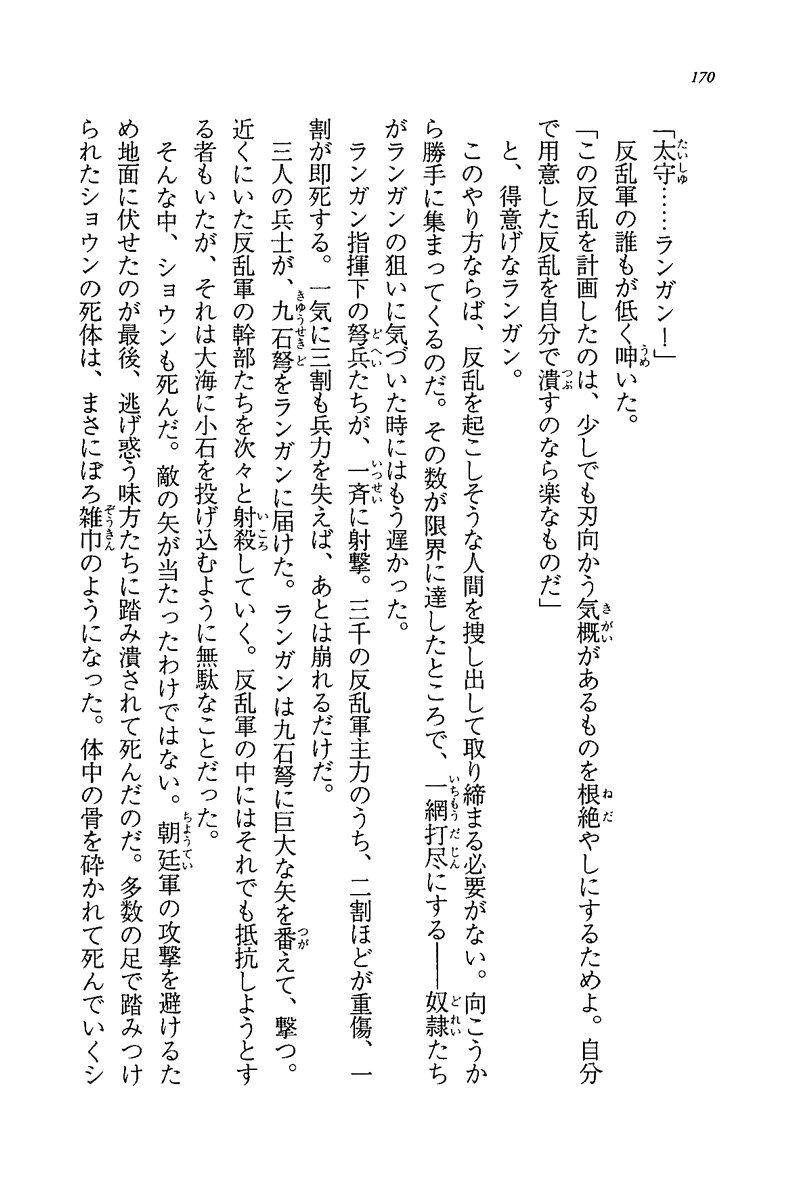 170
「太守……ランガン！」
反乱軍の誰もが低く呻いた。
「この反乱を計画したのは、少しでも刃向かう気概があるものを根絶やしにするためよ。自分
で用意した反乱を自分で潰すのなら楽なものだ」
と、得意げなランガン。
このやり方ならば、反乱を起こしそうな人間を捜し出して取り締まる必要がない。向こうか
ら勝手に集まってくるのだ。その数が限界に達したところで、一網打尽にする――奴隷たち
がランガンの狙いに気づいた時にはもう遅かった。
ランガン指揮下の弩兵たちが、一斉に射撃。三千の反乱軍主力のうち、二割ほどが重傷、一
割が即死する。一気に三割も兵力を失えば、あとは崩れるだけだ。
三人の兵士が、九石弩をランガンに届けた。ランガンは九石弩に巨大な矢を番えて、撃つ。
近くにいた反乱軍の幹部たちを次々と射殺していく。反乱軍の中にはそれでも抵抗しようとす
る者もいたが、それは大海に小石を投げ込むように無駄なことだった。
そんな中、ショウンも死んだ。敵の矢が当たったわけではない。朝廷軍の攻撃を避けるた
め地面に伏せたのが最後、逃げ惑う味方たちに踏み潰されて死んだのだ。多数の足で踏みつけ
られたショウンの死体は、まさにぼろ雑巾のようになった。体中の骨を砕かれて死んでいくシ